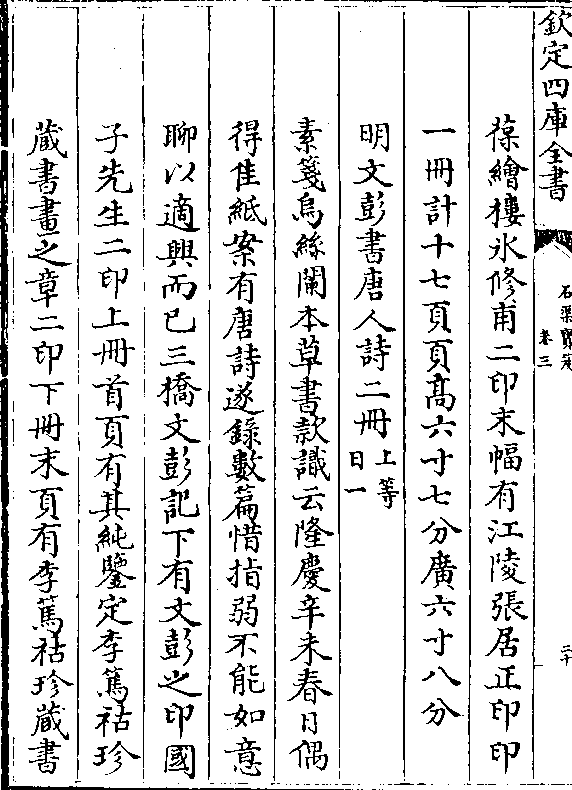 欽定四庫全書
石渠寳笈
卷三
二十
葆繪樓氷修甫二印末幅有江陵張居正印印
一冊計十七頁頁髙六寸七分廣六寸八分
明文彭書唐人詩二冊上等日一
素箋烏絲闌本草書款識云隆慶辛未春日偶
得佳紙案有唐詩遂錄數篇惜指弱不能如意
聊以適興而已三橋文彭記下有文彭之印國
子先生二印上冊首頁有其純鑒定李篤祜珍
蔵書畫之章二印下冊末頁有李篤祜珍蔵書